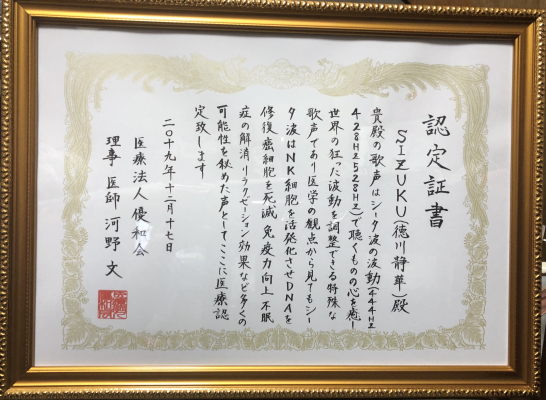 認定証書
SIZUKU(徳川静華)殿
貴殿の歌声はシータ波の波動(444HZ
428HZ528HZ)で聴くものの心を癒し
世界の狂った波動を調整できる特殊な
歌声であり医学の観点から見てもシー
タ波はNK細胞を活発化させDNAを
修復癌細胞を死滅 免疫力向上不眠
症の解消リラクゼーション効果など多くの
可能性を秘めた声としてここに医療認
定致します
二〇十九年十二月十七日
医療法人優和会
理事 医師 河野 文